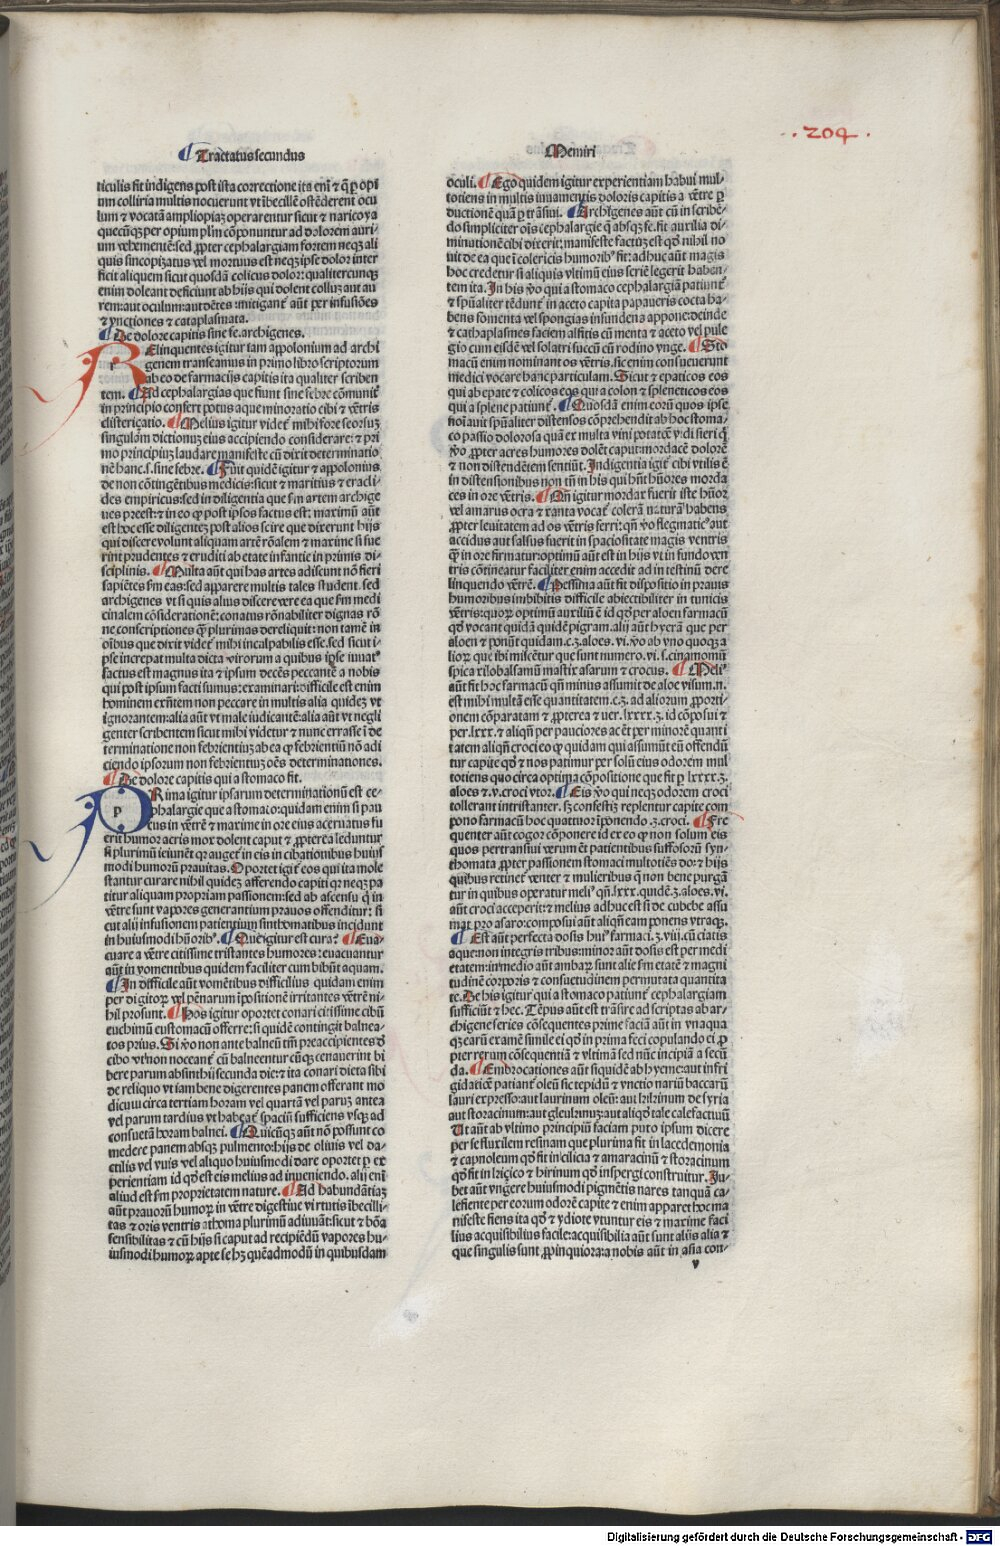 .204.
Tractatus secundus
Memiri
ticulis fit indigens post ista correctione ita enī ⁊ q̄ ꝑ opi
um colliria multis nocuerunt vt ībecille ostēderent ocu
lum ⁊ vocatā ampliopiaꝫ operarentur sicut ⁊ naricoya
quecūqꝫ per opium pl'm cōponuntur ad dolorem auri-
um vehementē: sed ꝓpter cephalargiam fortem neqꝫ ali
quis sincopizatus vel mortuus est neqꝫ ipse dolor inter
ficit aliquem sicut quosdā colicus dolor: qualitercunqꝫ
enim doleant deficiunt ab hijs qui dolent collūꝫ aut au
rem: aut oculum: aut dētes: mitigant' aūt per infusiōes
⁊ vnctiones ⁊ cataplasmata.
De dolore capitis sine fe. archigenes.
Relinquentes igitur iam appolonium ad archi
genem transeamus in primo libro scriptorum
ab eo de farmacijs capitis ita qualiter scriben
tem. Ad cephalargias que fiunt sine febre cōmunit'
in principio confert potus aque minoratio cibi ⁊ vētris
clistericatio. Melius igitur videt' mihi fore seorsuꝫ
singulam dictionuꝫ eius accipiendo considerare: ⁊ pri
mo principiuꝫ laudare manifeste cū dixit determinatio
nē hanc. s. sine febre. Fuit quidē igitur ⁊ appolonius
de non cōtingētibus medicis: sicut ⁊ maritius ⁊ eracli-
des empiricus: sed in diligentia que sm artem archige
nes preest: ⁊ in eo ꝙ post ipsos factus est: maximū aūt
est hoc esse diligenteꝫ post alios scire que dixerunt hijs
qui discere volunt aliquam artē rōalem ⁊ maxime si fue
rint prudentes ⁊ eruditi ab etate infantie in primis di-
sciplinis. Multa aūt qui has artes adiscunt nō fieri
sapiētes sm eas: sed apparere multis tales student. sed
archigenes vt si quis alius discere vere ea que sm medi
cinalem cōsiderationē: conatus rōnabiliter dignas rō
ne conscriptiones ꝙ plurimas dereliquit: non tamē in
oībus que dixit videt' mihi inculpabilis esse. sed sicut i-
pse increpat multa dicta virorum a quibus ipse iuuat'
factus est magnus ita ⁊ ipsum decēs peccantē a nobis
qui post ipsum facti sumus: examinari: difficile est enim
hominem exn̄tem non peccare in multis alia quideꝫ vt
ignorantem: alia aūt vt male iudicantē: alia aūt vt negli
genter scribentem sicut mihi videtur ⁊ nunc errasse ī de
terminatione non febrientiuꝫ ab ea ꝙ febrientiū nō adi
ciendo ipsorum non febrientiuꝫ oēs determinationes.
De dolore capitis qui a stomaco fit.
Prima igitur ipsarum determinationū est ce-
phalargie que a stomaco: quidam enim si pau
cus in vētrē ⁊ maxime in ore eius aceruatus fu
erit humor acris mox dolent caput ⁊ ꝓpterea leduntur
si plurimū ieiunēt qr auget' in eis in cibationibus huius
modi humorū prauitas. Oportet igit' eos qui ita mole
stantur curare nihil quideꝫ afferendo capiti qr neqꝫ pa
titur aliquam propriam passionem: sed ab ascensu q̄ in
vētre sunt vapores generantium prauos offenditur: si
cut alij infusionem patientium sinthomatibus incidunt
in huiusmodi hūorib'. Que igitur est cura? Eua
cuare a vētre citissime tristantes humores: euacuantur
aūt in vomentibus quidem faciliter cum bibūt aquam.
In difficile aūt vomētibus difficilius quidam enim
per digitoꝝ vel pēnarum īpositionē irritantes vētrē ni-
hil prosunt. Hos igitur oportet conari citissime cibū
euchimū eustomacū offerre: si quidē contingit balnea-
tos prius. Si v̄o non ante balneū tm̄ preaccipientes d̄
cibo vt non noceant' cū balneentur cūqꝫ cenauerint bi
bere parum absinthij secunda die: ⁊ ita conari dieta sibi
de reliquo vt iam bene digerentes panem offerant mo
dicū circa tertiam horam vel quartā vel paruꝫ antea
vel parum tardius vt habeat' spaciū sufficiens vsqꝫ ad
consuetā horam balnei. Quicūqꝫ aūt nō possunt co
medere panem absqꝫ pulmento: hijs de oliuis vel da-
ctilis vel vuis vel aliquo huiusmodi dare oportet ꝑ ex
perientiam id qd' est eis melius ad inueniendo. alij enī
aliud est sm proprietatem nature. Ad habundātiaꝫ
aūt prauorū humoꝝ in vētre digestiue virtutis ībecilli-
tas ⁊ oris ventris athoma plurimū adiuuāt: sicut ⁊ bōa
sensibilitas ⁊ cū hijs si caput ad recipiēdū vapores hu-
iusmodi humoꝝ apte se hꝫ quēadmodū in quibusdam
oculi. Ego quidem igitur experientiam habui mul-
totiens in multis iuuamentis doloris capitis a vētre ꝓ
ductionē quā ꝑ trāsiui. Archigenes aūt cū in scribē-
do simpliciter oīs cephalargie q̄ absqꝫ fe. fit auxilia di-
minutionē cibi dixerit: manifeste factuꝫ est qd' nihil no
uit de ea que ī colericis humorib' fit: adhuc aūt magis
hoc credetur si aliquis vltimū eius seriē legerit haben-
tem ita. In his v̄o qui a stomaco cephalargiā patiunt'
⁊ spūaliter tēdunt' in aceto capita papaueris cocta ha-
bens fomenta vel spongias infundens appone: deinde
⁊ cathaplasmes faciem alfitis cū menta ⁊ aceto vel pule
gio cum eisdē vel solatri succū cū rodino vnge. Sto
macū enim nominant os vētris. sic enim consueuerunt
medici vocare hanc particulam. Sicut ⁊ epaticos eos
qui ab epate ⁊ colicos eos qui a colon ⁊ spleneticos eos
qui a splene patiunt'. Quosdā enim eorū quos ipse
noīauit spūaliter distensos comprehendit ab hoc stoma-
co passio dolorosa quā ex multa vini potatōe vidi fieri q̄
v̄o ꝓpter acres humores dolēt caput: mordacē dolorē
⁊ non distendētem sentiūt. Indigentia igit' cibi vtilis ē
in distensionibus non tn̄ in his qui hn̄t hūores morda
ces in ore vētris. Qn̄ igitur mordax fuerit iste hūor
vel amarus ocra ⁊ xanta vocat' colerā naturā habens
ꝓpter leuitatem ad os vētris ferri: qn̄ v̄o flegmatic' aut
accidus aut salsus fuerit in spaciositate magis ventris
ꝙ in ore firmatur: optimū aūt est in hijs vt in fundo ven
tris cōtineatur faciliter enim accedit ad intestinū dere
linquendo vētrē. Pessima aūt fit dispositio in prauis
humoribus imbibitis difficile abiectibiliter in tunicis
vētris: quoꝝ optimū auxiliū ē id qd' per aloen farmacū
qd' vocant quidā quidē pigram. alij aūt hyerā que per
aloen ⁊ ponūt quidam. c. ʒ. aloes. vi. v̄o ab vno quoqꝫ a
lioꝝ que ibi miscētur que sunt numero. vi. s. cinamomū
spica xilobalsamū mastix asarum ⁊ crocus. Meli'
aūt fit hoc farmacū qn̄ minus assumit de aloe visum. n.
est mihi multā esse quantitatem. c. ʒ. ad aliorum ꝓporti-
onem cōparatam ⁊ ꝓpterea ⁊ uer. lxxxx. ʒ. id cōposui ⁊
per. lxxx. ⁊ aliqn̄ per pauciores ac ēt per minorē quanti
tatem aliqn̄ croci eo ꝙ quidam qui assumūt eū offendū
tur capite qd' ⁊ nos patimur per solū eius odorem mul
totiens quo circa optima cōpositione que fit ꝑ lxxxx. ʒ.
aloes ⁊. v. croci vtor. Eis v̄o qui neqꝫ odorem croci
tollerant intristanter. sꝫ confestiꝫ replentur capite com
pono farmacū hoc quatuor īponendo. ʒ. croci. Fre
quenter aūt cogor cōponere id ex eo ꝙ non solum eis
quos pertransiui verum ēt patientibus suffosorū syn-
thomata ꝓpter passionem stomaci multotiēs do: ⁊ hijs
quibus retinet' venter ⁊ mulieribus q̄ non bene purgā
tur in quibus operatur meli' qn̄. lxx. quidē. ʒ. aloes. vi.
aūt croci acceperit: ⁊ melius adhuc est si de cubebe assu
mat pro asaro: composui aūt aliqn̄ eam ponens vtraqꝫ.
Est aūt perfecta dosis hui' farmaci. ʒ. viij. cū ciatis
aque: non integris tribus: minor aūt dosis est per medi
etatem: in medio aūt ambaꝝ sunt alie sm etatē ⁊ magni
tudinē corporis ⁊ consuetudinem permutata quantita
te. De his igitur qui a stomaco patiunt' cephalargiam
sufficiūt ⁊ hec. Tēpus aūt est trāsire ad scriptas ab ar-
chigene series cōsequentes prime faciā aūt in vnaqua
qꝫ earū examē simile ei qd' in prima feci copulando ei ꝓ
pter rerum cōsequentiā ⁊ vltimā sed nūc incipiā a secū
da. Embrocationes aūt siquidē ab hyeme: aut infri
gidatiōe patiant' oleū sic tepidū ⁊ vnctio nariū baccarū
lauri expresso: aut laurinum oleū: aut hirinum de syria
aut storacinum: aut gleulinuꝫ: aut aliqd' tale calefactiuū
Ut aūt ab vltimo principiū faciam puto ipsum dicere
per se fluxilem resinam que plurima fit in lacedemonia
⁊ capnoleum qd' fit in cilicia ⁊ amaracinū ⁊ storacinum
qd' fit in kiçico ⁊ hirinum qd' inspergi construitur. Ju-
bet aūt vngere huiusmodi pigmētis nares tanquā ca-
lefiente per eorum odorē capite ⁊ enim apparet hoc ma
nifeste fiens ita qd' ⁊ ydiote vtuntur eis ⁊ maxime faci
lius acquisibilius facile: acquisibilia aūt sunt alijs alia ⁊
que singulis sunt ꝓpinquiora: a nobis aūt in asia con-
v
Digitalisierung gefördert durch die Deutsche Forschungsgemeinschaft - DFG